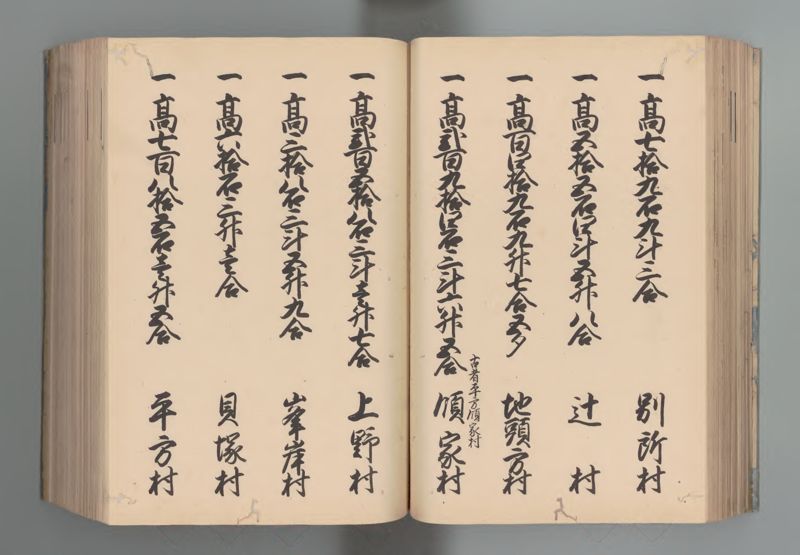 一 高七拾九石九斗三合 別所村
一 高五拾五石四斗五升八合 辻村
一 高百四拾九石九升七合五夕 地頭方村
古者平方領家村
一 高弐百九拾四石三斗六升五合 領家村
一 高弐百五拾八石三斗壱升七合 上野村
一 高二拾八石三斗五升九合 峯岸村
一 高六拾石三升壱合 貝塚村
一 高七百八拾五石壱升五合 平方村